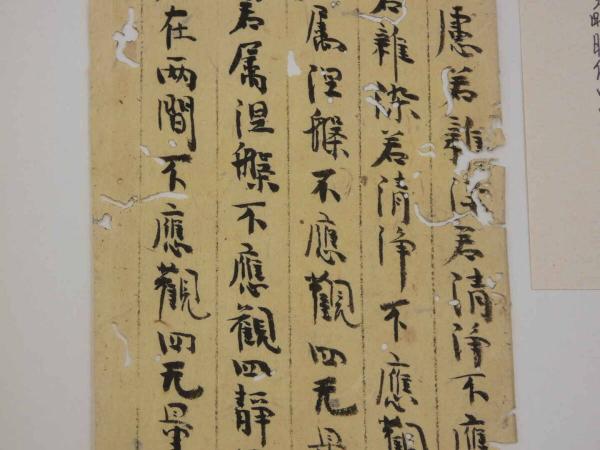 慮若雜染若清淨不應
若雜染若清淨不應觀
屬涅槃不應觀四无量
若屬涅槃不應觀四靜
在兩間不應觀四无量